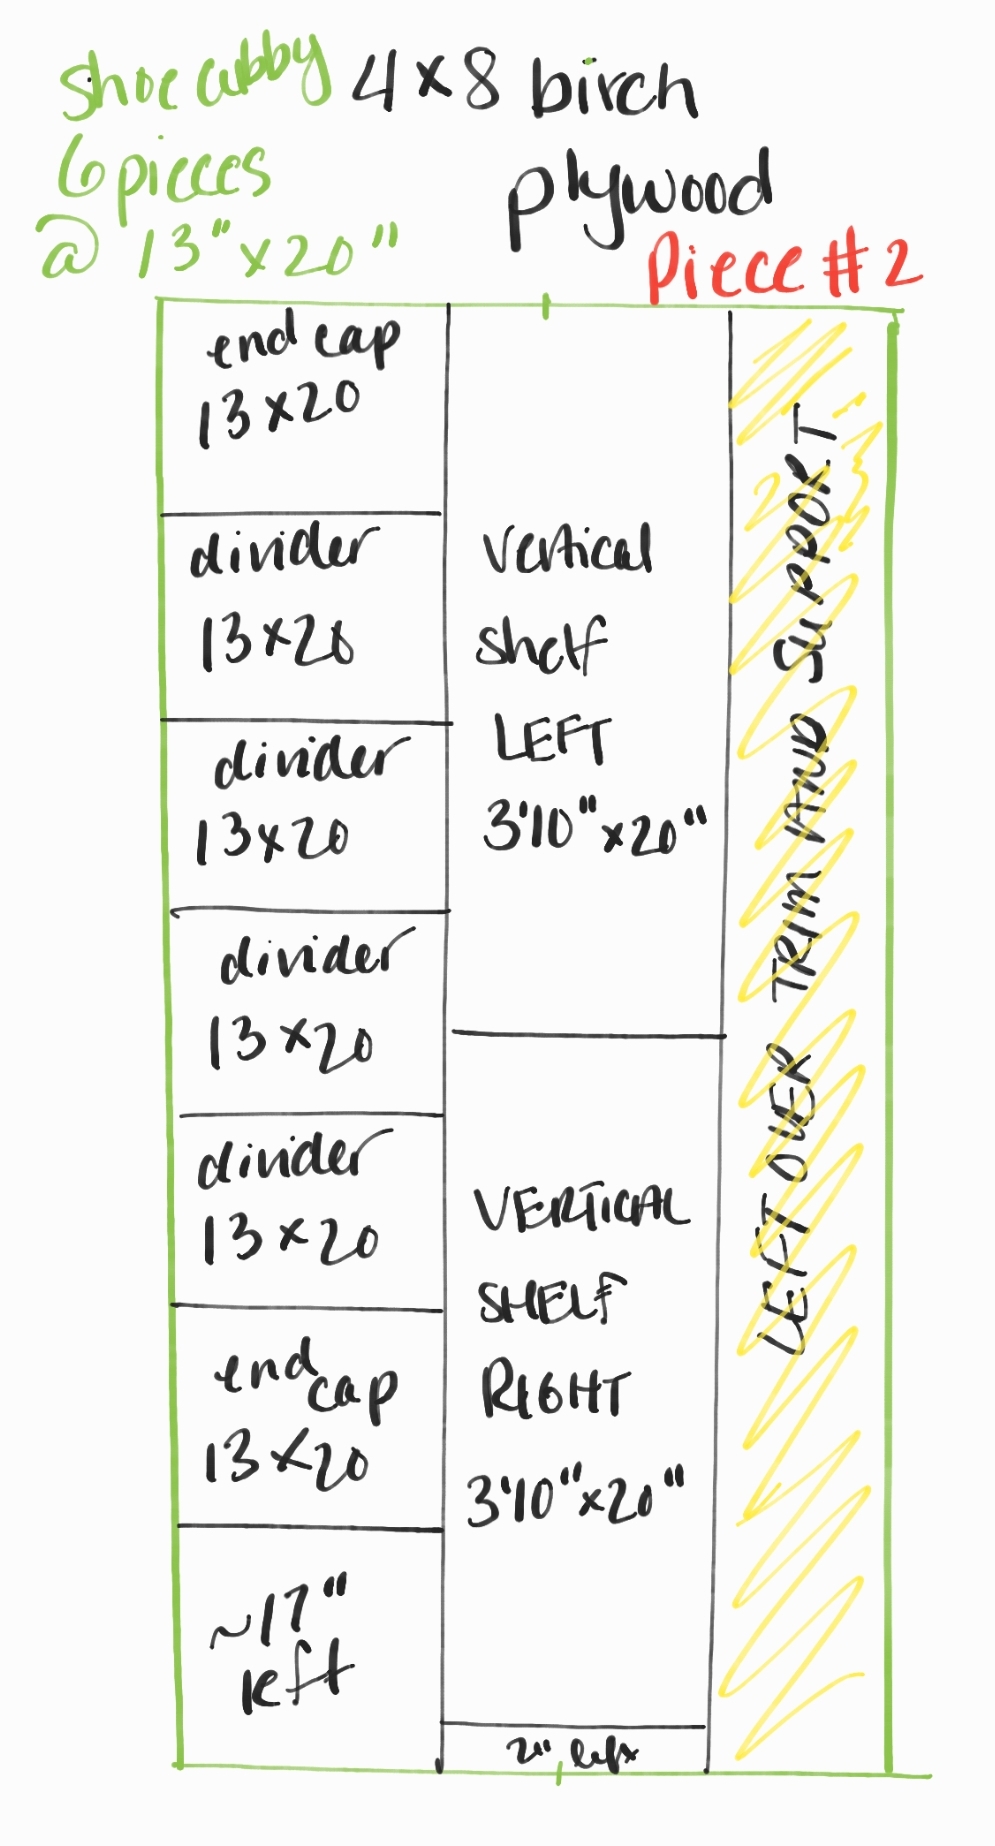 shoe cubby 4x8 birch
plywood
6 pieces
@ 13"x20"
Piece #2
end cap
13x20
divider
13x20
divider
13x20
divider
13x20
divider
13x20
end cap
13x20
~17"
left
Vertical
Shelf
LEFT
3'10"x20"
VERTICAL
SHELF
RIGHT
3'10"x20"
2" left
LEFT OVER TRIM AND SUPPORT